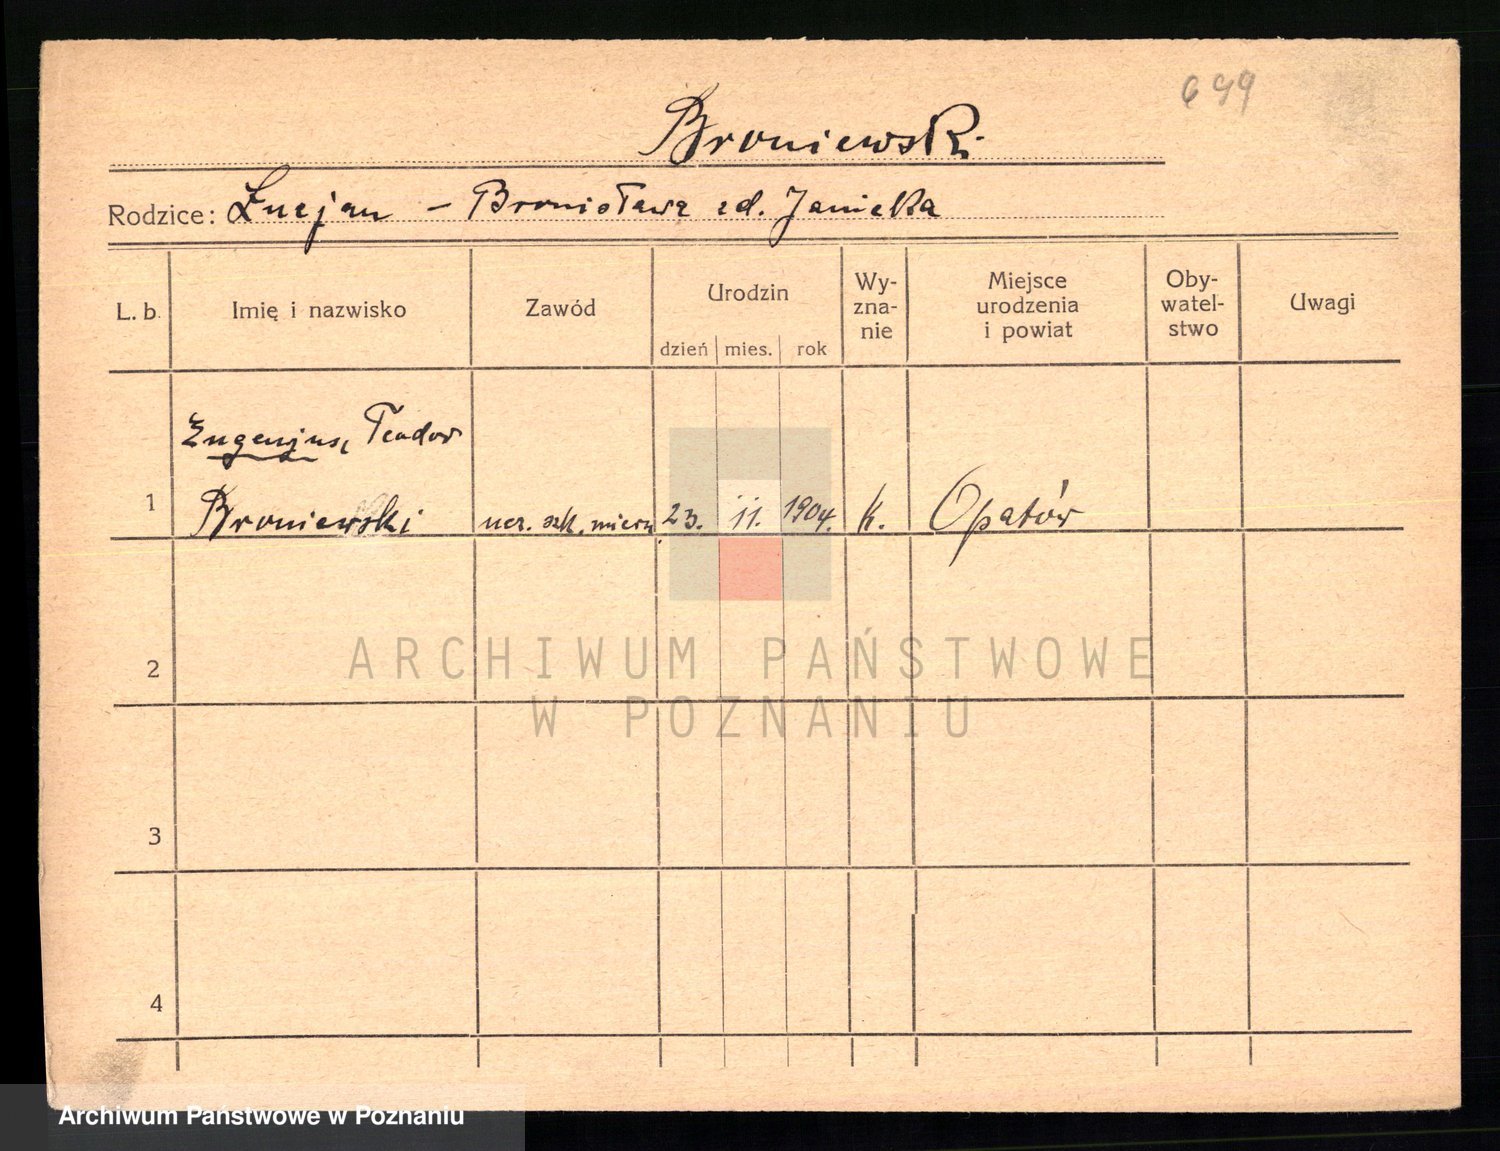 699
Broniewski
Rodzice: Łucjan – Bronisława zd. Janicka
L. b. Imię i nazwisko Zawód Urodzin Wy-zna-nie Miejsce urodzenia i powiat Oby-watel-stwo Uwagi
dzień mies. rok
Eugenjusz, Teodor
1 Broniewski ucz. szk. miern. 23. 11. 1904. k. Opatów
2
ARCHIWUM PAŃSTWOWE
W POZNANIU
3
4
Archiwum Państwowe w Poznaniu